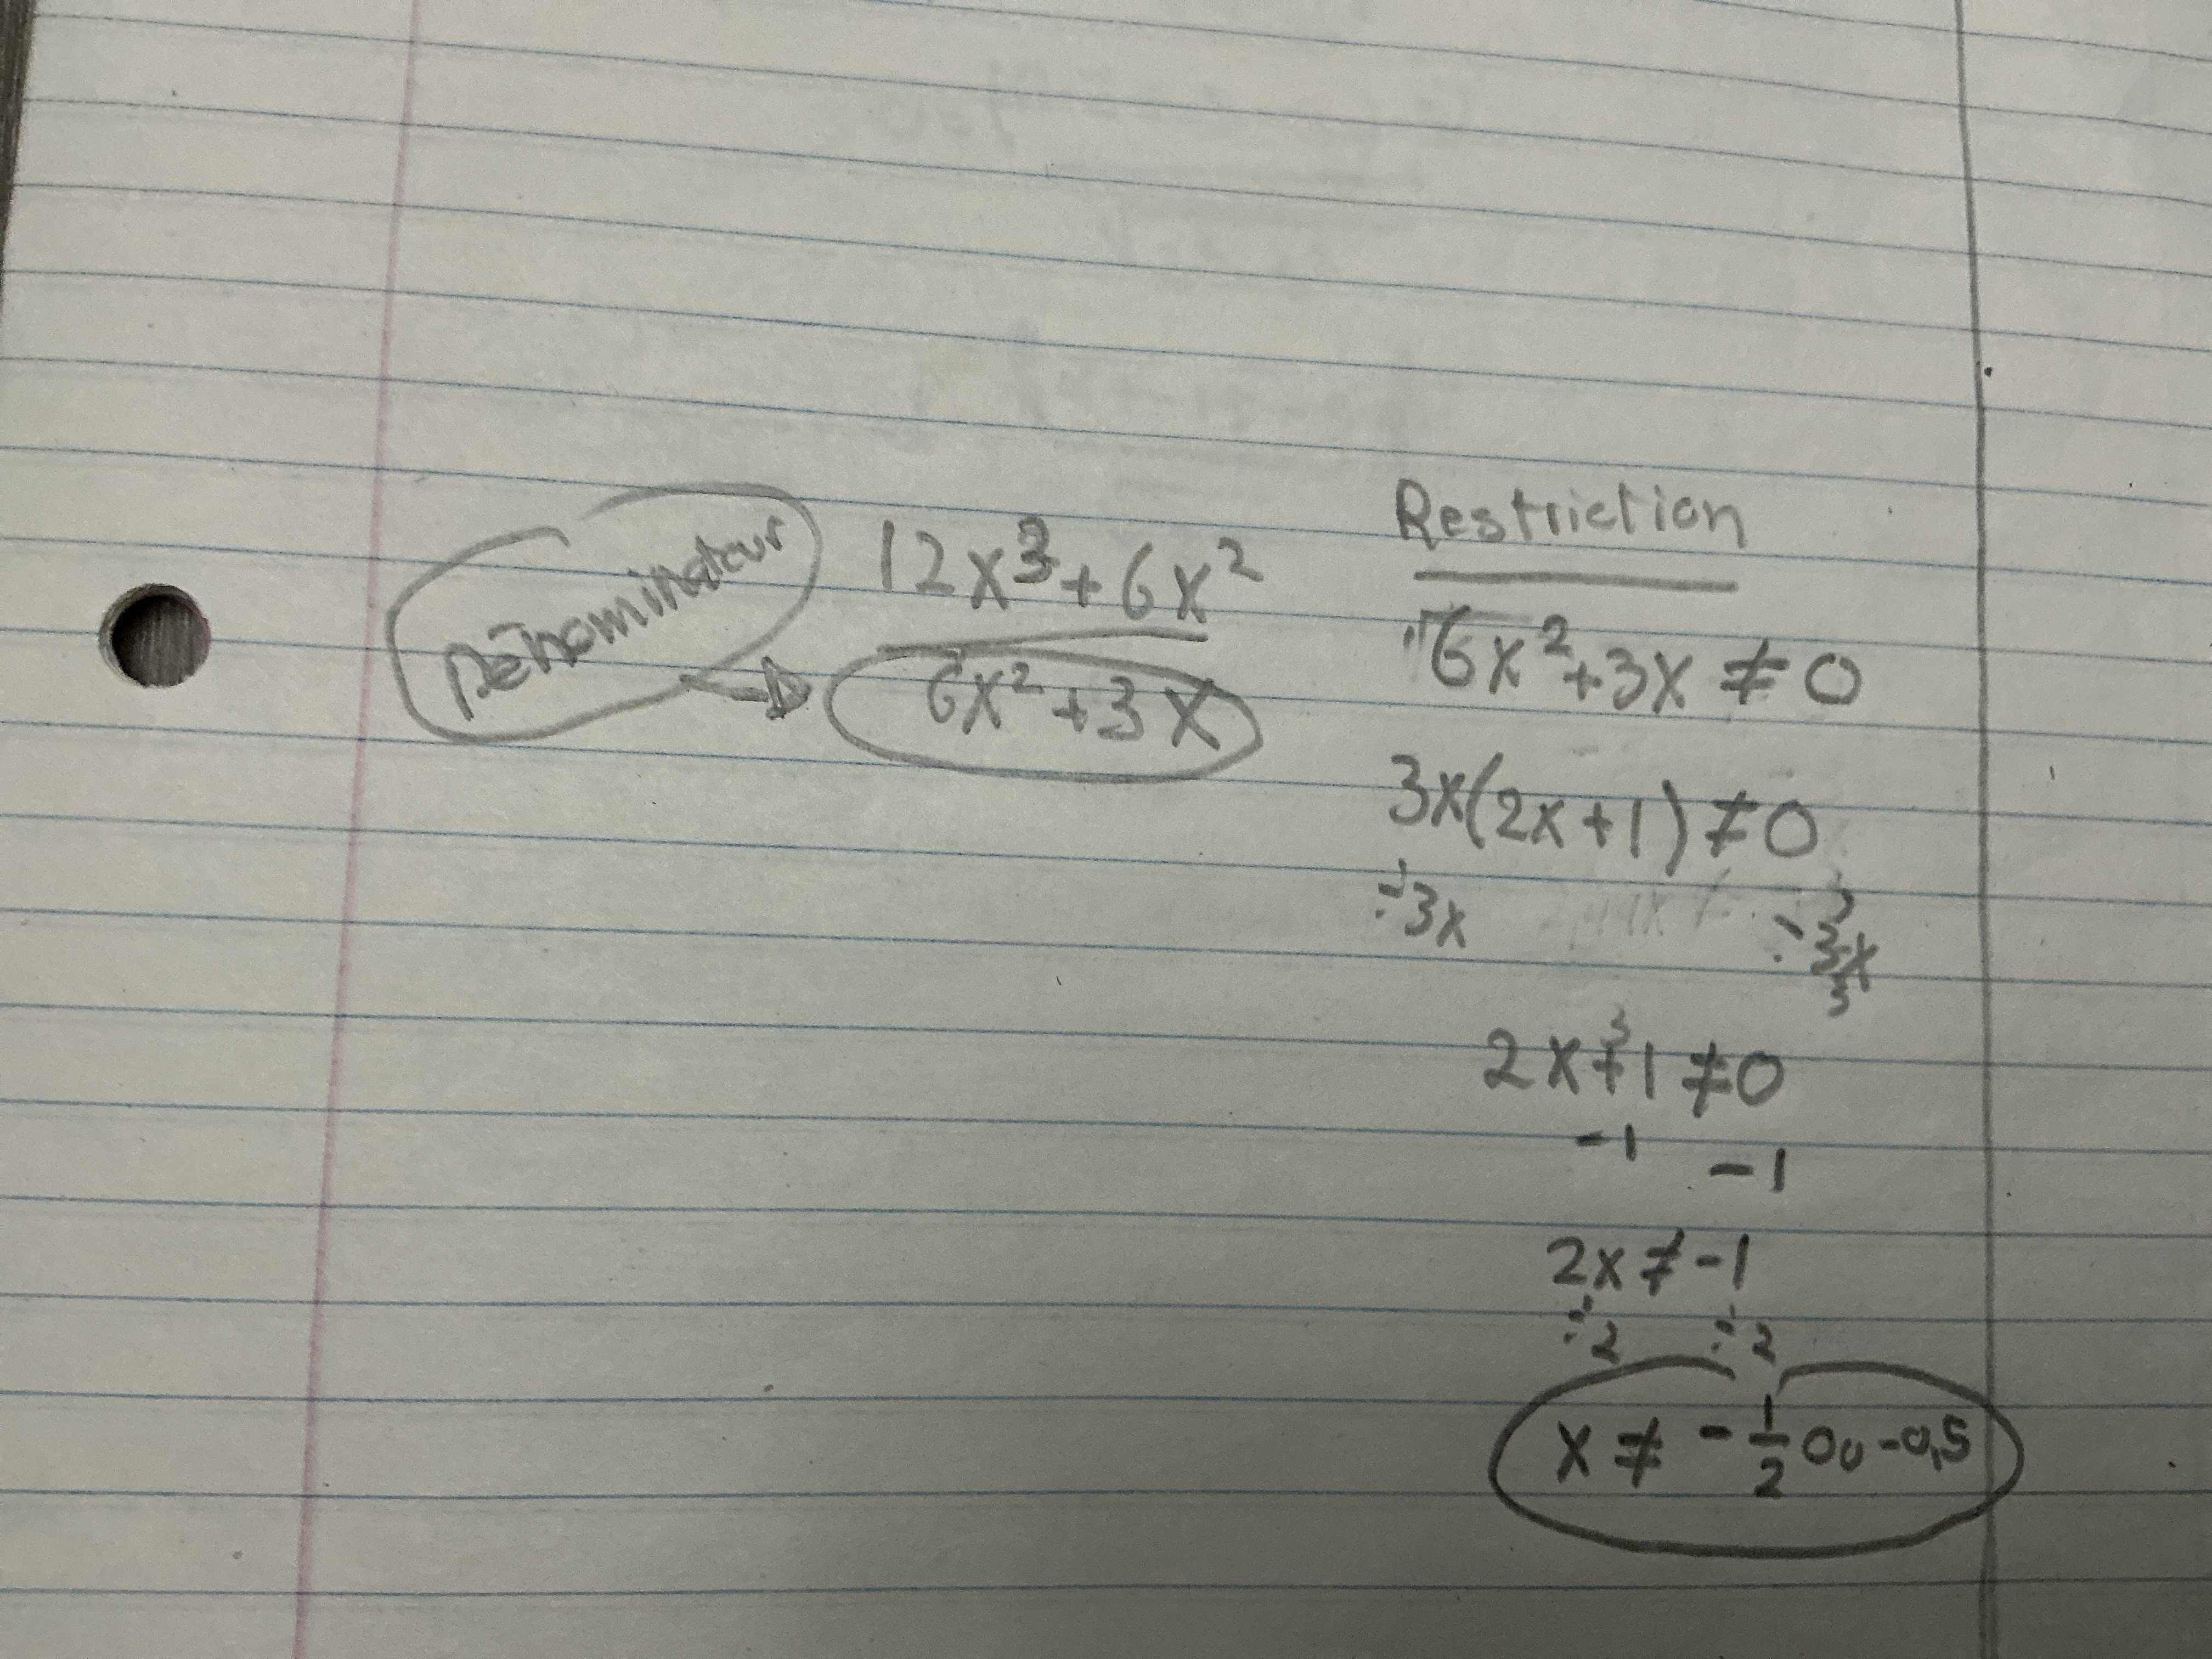 Dénominateur
12x³+6x²
6x²+3x
Restriction
6x²+3x ≠ 0
3x(2x+1) ≠ 0
÷3x ÷3x
2x+1 ≠ 0
-1 -1
2x ≠ -1
÷2 ÷2
x ≠ -1/2 Ou -0,5